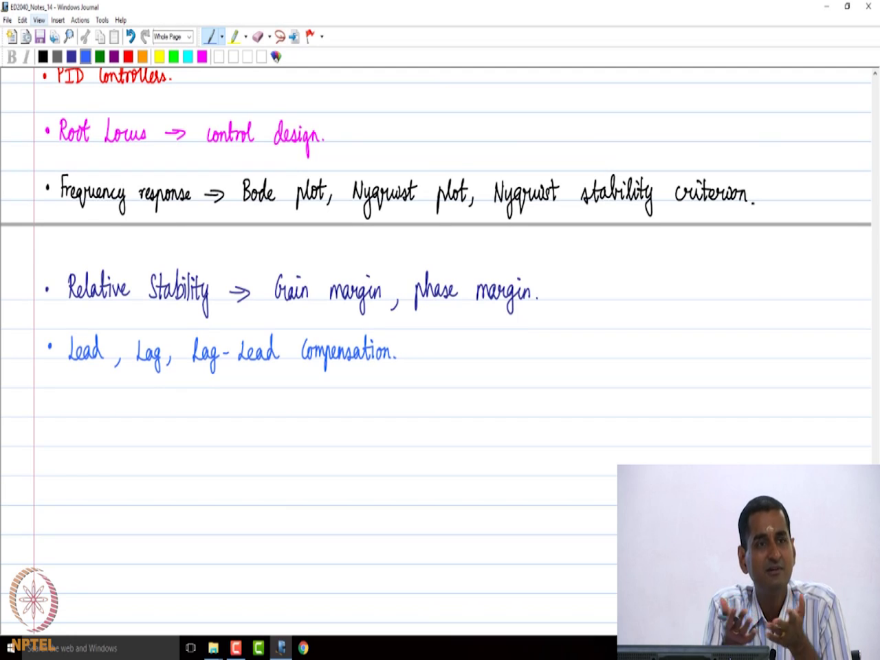 ED2040_Notes_14 - Windows Journal
File Edit View Insert Actions Tools Help
Whole Page
B I
• PID Controllers.
• Root Locus → control design.
• Frequency response → Bode plot, Nyquist plot, Nyquist stability criterion.
• Relative Stability → Gain margin, phase margin.
• Lead, Lag, Lag-Lead Compensation.
NPTEL
the web and Windows